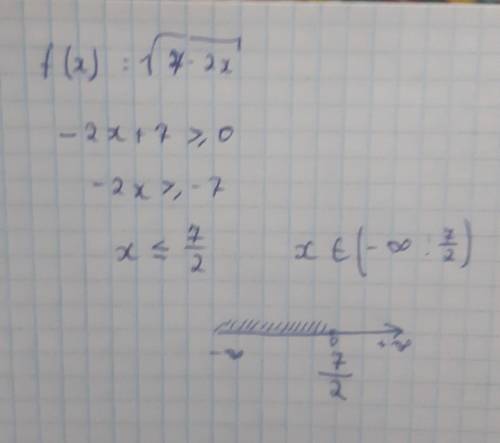 f(x) = √7-2x
-2x+7 ≥ 0
-2x ≥ -7
x ≤ 7/2 x ∈ (-∞ : 7/2)
-∞ 7/2 +∞